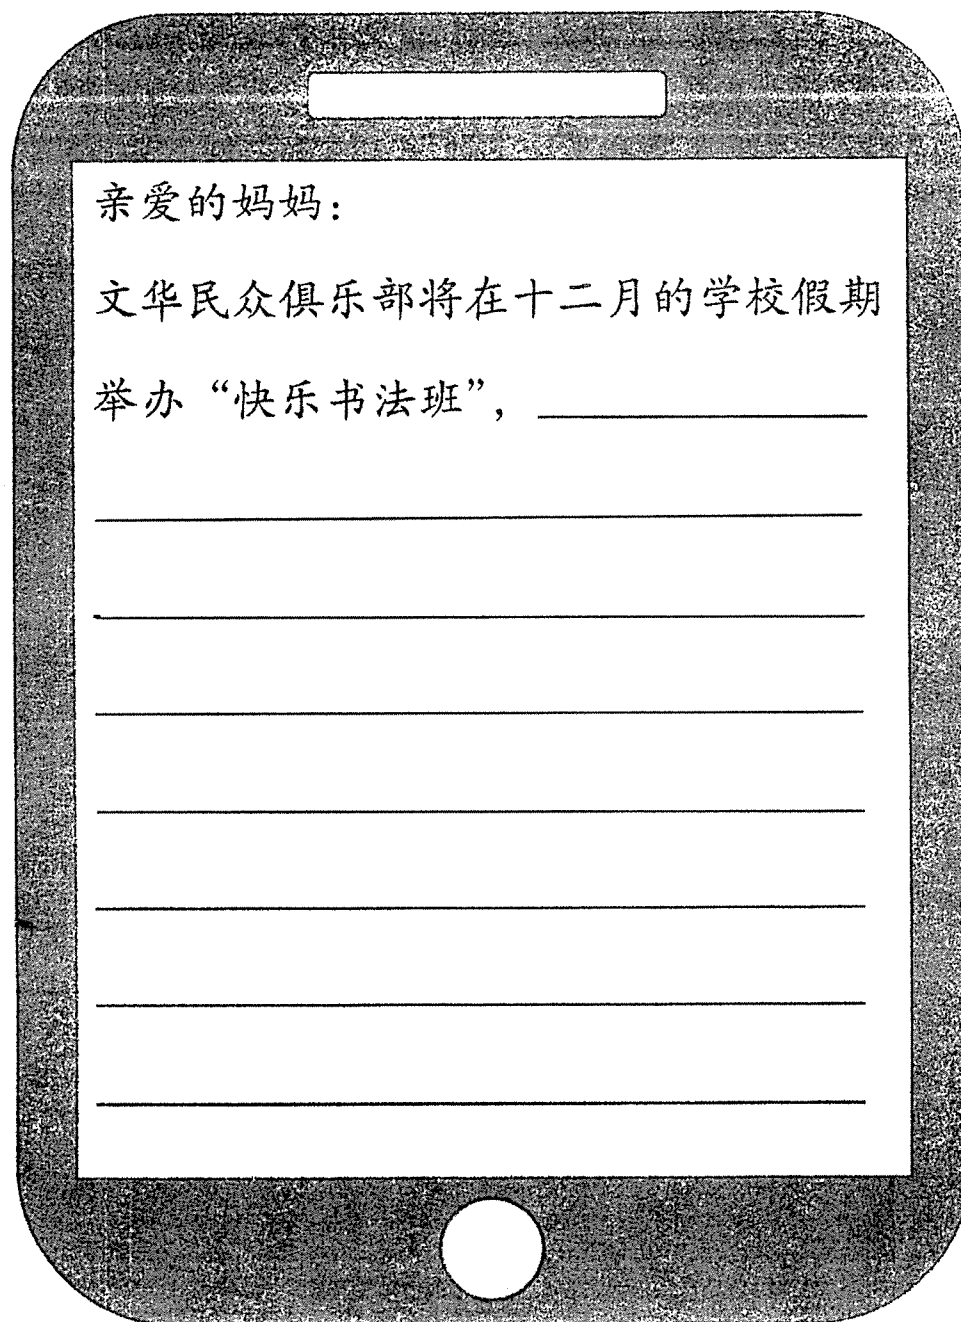 亲爱的妈妈：
文华民众俱乐部将在十二月的学校假期
举办“快乐书法班”，